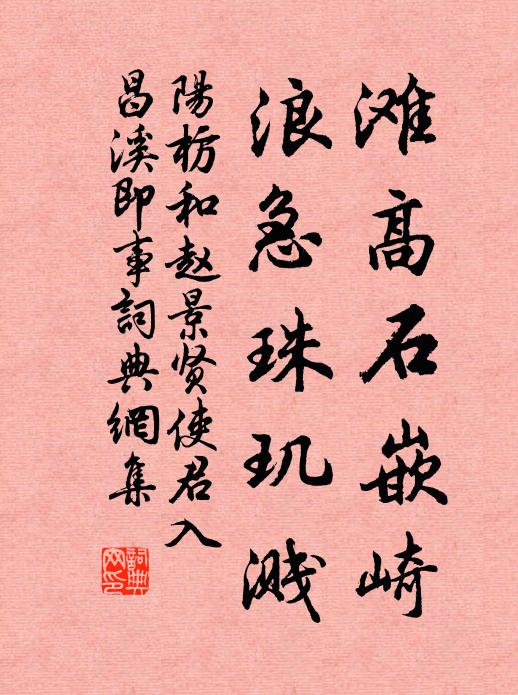 滩高石嵌崎
浪急珠玑溅
陽枋和赵景贤使君入
昌溪即事詞典網集
詞典网印